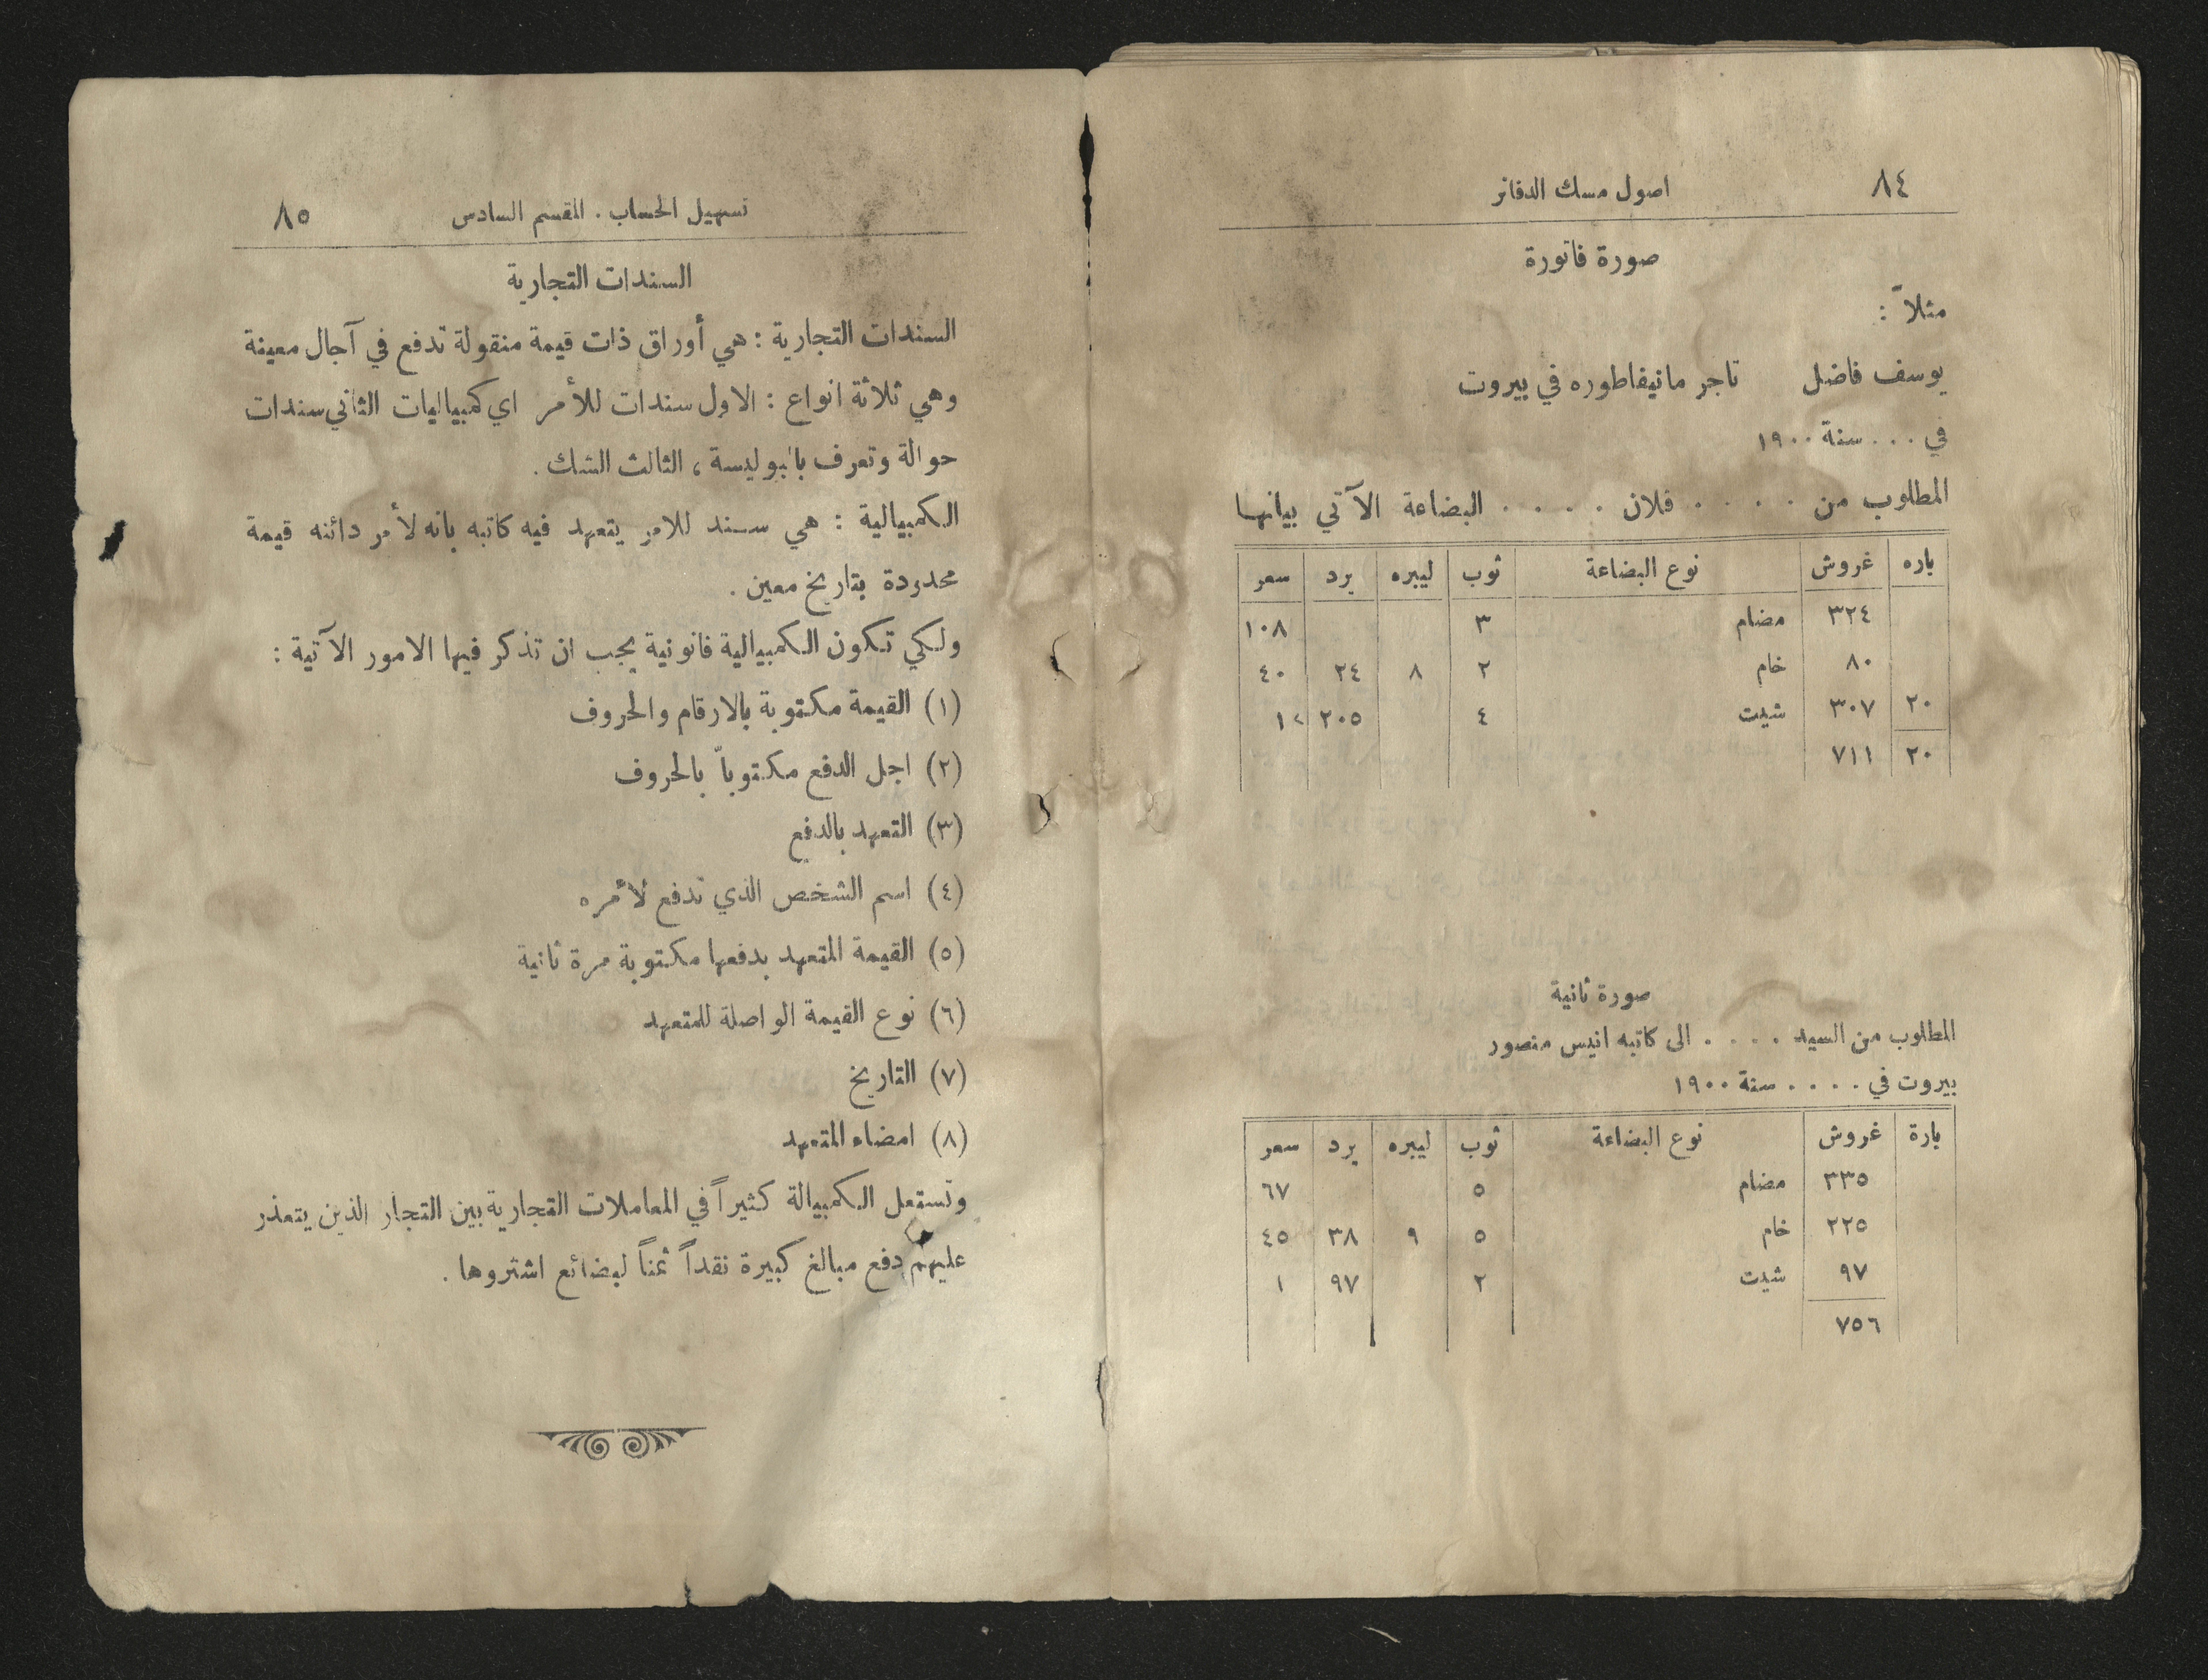 ٨٤ اصول مسك الدفاتر
صورة فاتورة
مثلاً :
يوسف فاضل تاجر مانيفاطوره في بيروت
في . . . سنة ١٩٠٠
المطلوب من . . . . فلان . . . . البضاعة الآتي بيانها
باره غروش نوع البضاعة ثوب ليبره يرد سعر
٣٢٤ مضام ٣ ١٠٨
٨٠ خام ٢ ٨ ٢٤ ٤٠
٢٠ ٣٠٧ شيت ٤ ٢٠٥
٢٠ ٧١١
صورة ثانية
المطلوب من السيد . . . . الى كاتبه انيس منصور
بيروت في . . . . سنة ١٩٠٠
بارة غروش نوع البضاعة ثوب ليبره يرد سعر
٣٣٥ مضام ٥ ٦٧
٢٢٥ خام ٥ ٩ ٣٨ ٤٥
٩٧ شيت ٢ ٩٧ ١
٧٥٦
تسهيل الحساب . القسم السادس ٨٥
السندات التجارية
السندات التجارية : هي أوراق ذات قيمة منقولة تدفع في آجال معينة
وهي ثلاثة انواع : الاول سندات للأمر اي كمبياليات الثاني سندات
حوالة وتعرف بالبوليسة ، الثالث الشك .
الكمبيالية : هي سند للامر يتعهد فيه كاتبه بانه لأمر دائنه قيمة
محدودة بتاريخ معين .
ولكي تكون الكمبيالية قانونية يجب ان تذكر فيها الامور الآتية :
(١) القيمة مكتوبة بالارقام والحروف
(٢) اجل الدفع مكتوباً بالحروف
(٣) التعهد بالدفع
(٤) اسم الشخص الذي تدفع لأمره
(٥) القيمة المتعهد بدفعها مكتوبة مرة ثانية
(٦) نوع القيمة الواصلة للمتعهد
(٧) التاريخ
(٨) امضاء المتعهد
وتستعل الكمبيالة كثيراً في المعاملات التجارية بين التجار الذين يتعذر
عليهم دفع مبالغ كبيرة نقداً ثمناً لبضائع اشتروها .